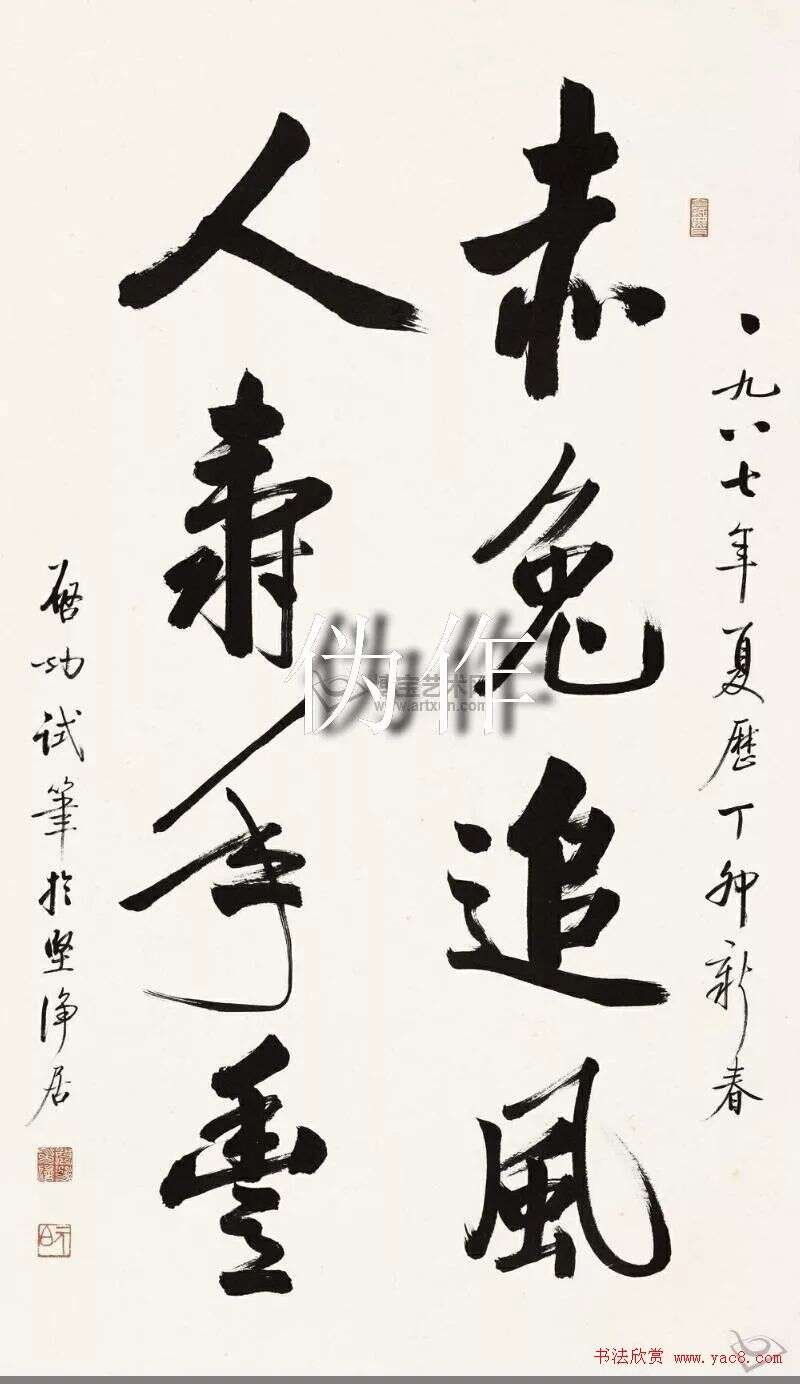 一九八七年夏歷丁卯新春
赤兔追風
人壽年豐
啓功試筆於堅淨居
伪作
博宝艺术网
www.artxun.com
书法欣赏 www.yac8.com